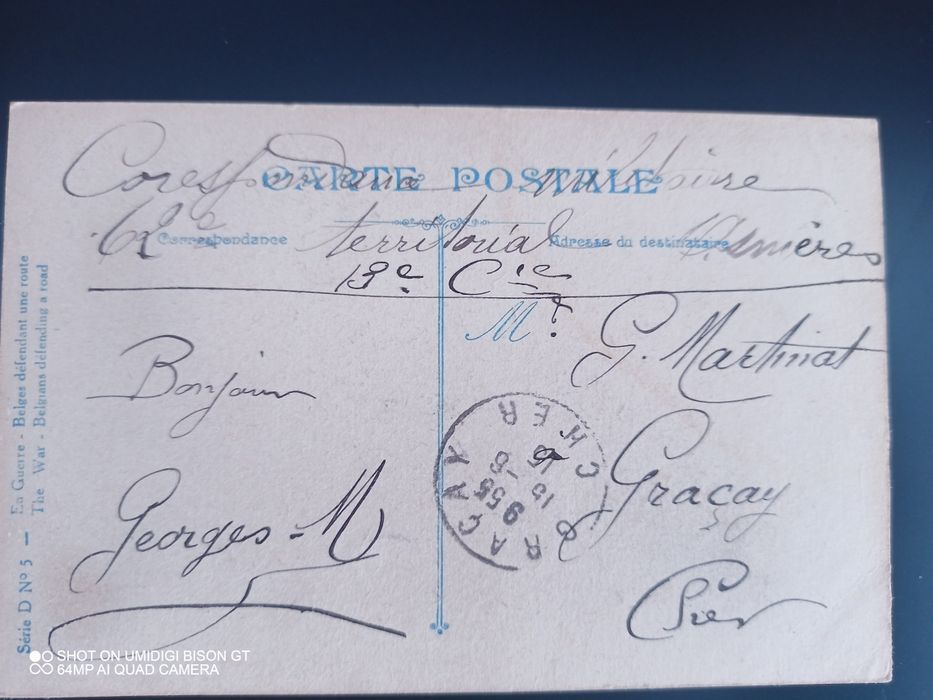 Corespondance militaire
CARTE POSTALE
62e territorial Asnières
Correspondance
Adresse du destinataire
13e Cie
Mr. G. Martinat
Bonjour
Georges - M
Graçay
Cher
GRAÇAY
CHER
9 55
15 - 6
15
Série D Nº 5 — En Guerre - Belges défendant une route
The War - Belgians defending a road
SHOT ON UMIDIGI BISON GT
64MP AI QUAD CAMERA